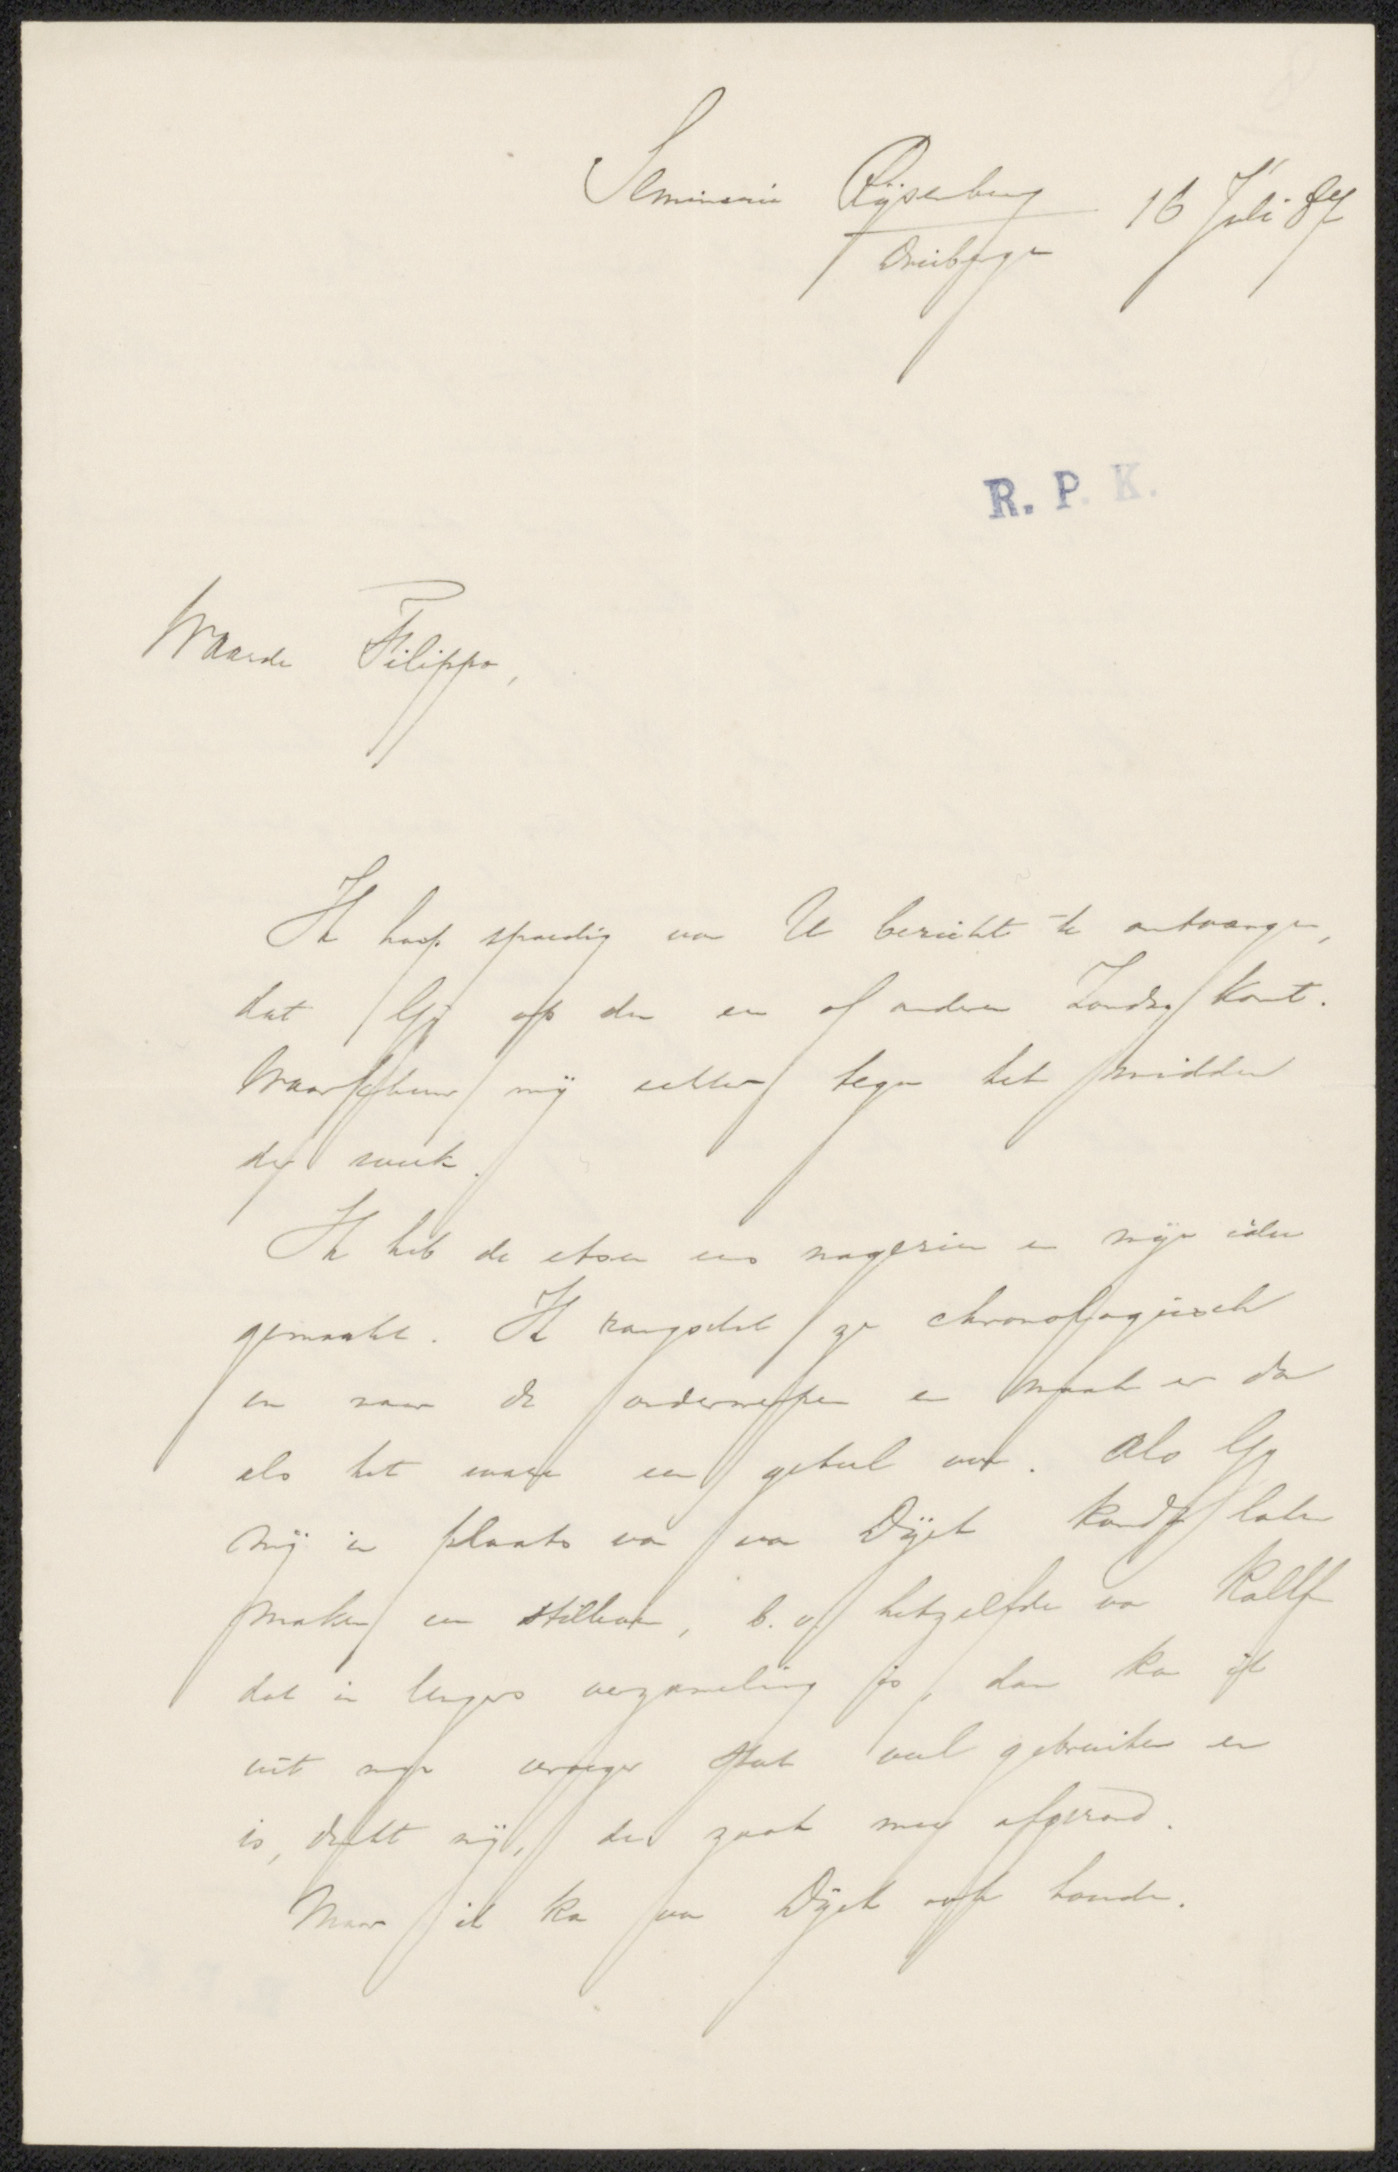 Seminarie Rijsenburg 16 Juli 87
Driebergen
R. P. K.
Waarde Filippo,
Ik hoop spoedig van U bericht te ontvangen,
dat Gij op den een of anderen Zondag komt.
Waarschuw mij echter tegen het midden
der week.
Ik heb de etsen eens nagezien en mijn idee
gemaakt. Ik rangschik ze chronologisch
en naar de onderwerpen en maak er dan
als het ware een geheel van. Als Gij
mij in plaats van van Dijck kondt laten
maken een stilleven, b.v. hetzelfde van Kalff
dat in Ungers verzameling is, dan kan ik
uit mijn vroeger stuk veel gebruiken en
is, dunkt mij, de zaak mee afgerond.
Maar ik kan van Dijck ook houden.